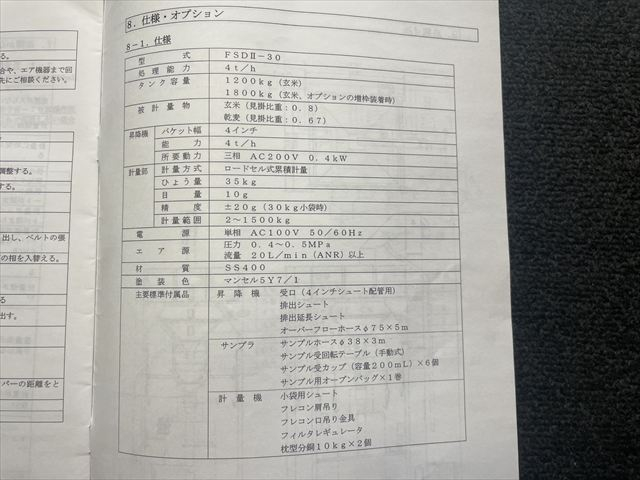 る。
合や、エア機器まで回
先にご相談ください。
調整する。
する。
出し、ベルトの張
の相を入替える。
る
出す。
バーの距離をと
８．仕様・オプション
８－１．仕様
型式 ＦＳＤⅡ－３０
処理能力 ４ｔ／ｈ
タンク容量 １２００ｋｇ（玄米）
１８００ｋｇ（玄米、オプションの増枠装着時）
被計量物 玄米（見掛比重：０．８）
乾麦（見掛比重：０．６７）
昇降機 バケット幅 ４インチ
能力 ４ｔ／ｈ
所要動力 三相 ＡＣ２００Ｖ ０．４ｋＷ
計量部 計量方式 ロードセル式累積計量
ひょう量 ３５ｋｇ
目量 １０ｇ
精度 ±２０ｇ（３０ｋｇ小袋時）
計量範囲 ２～１５００ｋｇ
電源 単相 ＡＣ１００Ｖ ５０／６０Ｈｚ
エア源 圧力 ０．４～０．５ＭＰａ
流量 ２０Ｌ／ｍｉｎ（ＡＮＲ）以上
材質 ＳＳ４００
塗装色 マンセル５Ｙ７／１
主要標準付属品 昇降機 受口（４インチシュート配管用）
排出シュート
排出延長シュート
オーバーフローホースφ７５×５ｍ
サンプラ サンプルホースφ３８×３ｍ
サンプル受回転テーブル（手動式）
サンプル受カップ（容量２００ｍＬ）×６個
サンプル用オープンバッグ×１巻
計量機 小袋用シュート
フレコン肩吊り
フレコン口吊り金具
フィルタレギュレータ
枕型分銅１０ｋｇ×２個